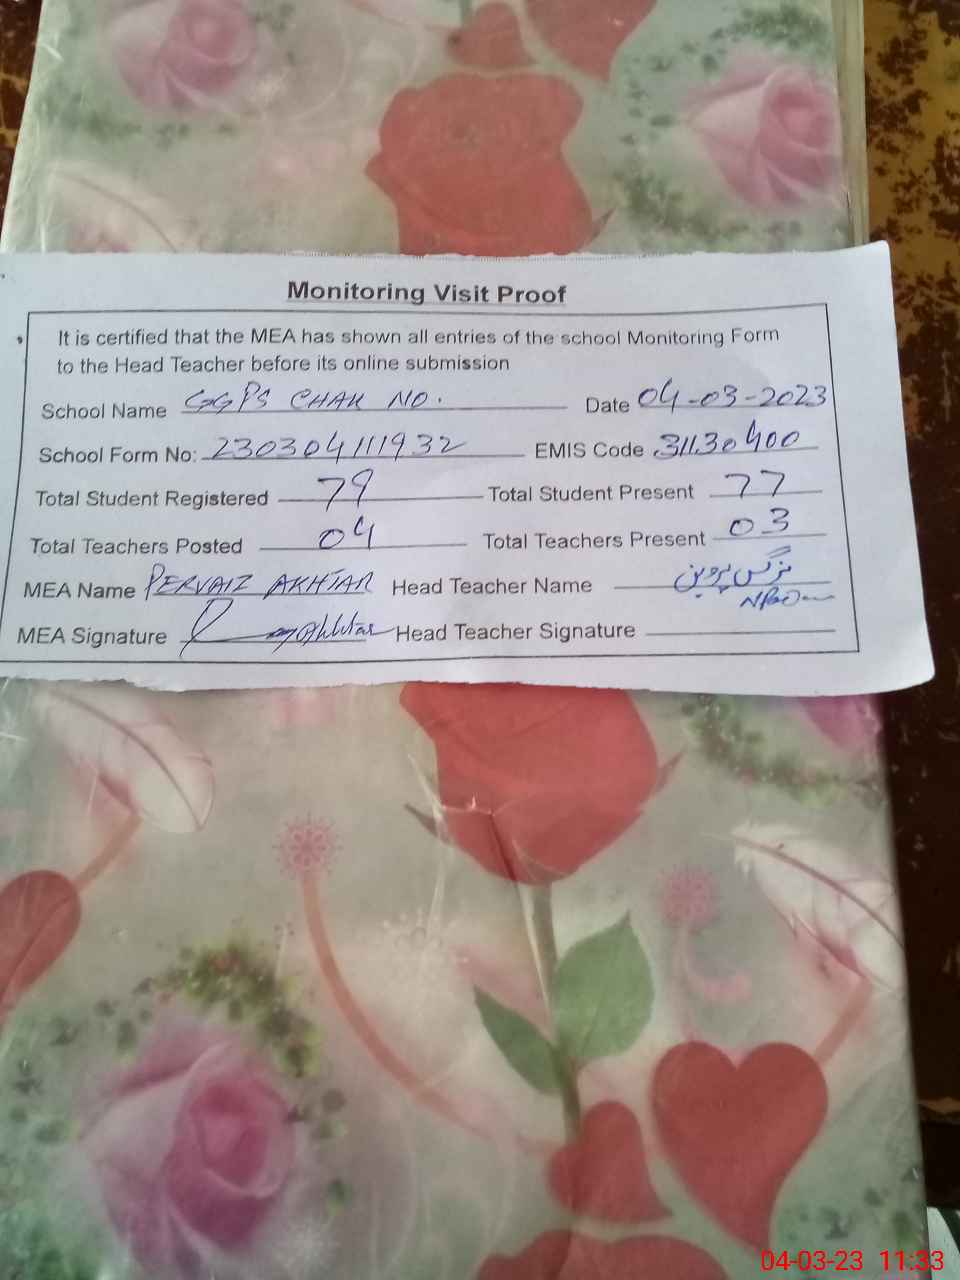 Monitoring Visit Proof
It is certified that the MEA has shown all entries of the school Monitoring Form
to the Head Teacher before its online submission
School Name GGPS CHAK NO. Date 04-03-2023
School Form No: 230304111932 EMIS Code 31130400
Total Student Registered 79 Total Student Present 77
Total Teachers Posted 04 Total Teachers Present 03
MEA Name PERVAIZ AKHTAR Head Teacher Name نرگس پروین
MEA Signature Akhtar Head Teacher Signature
04-03-23 11:33